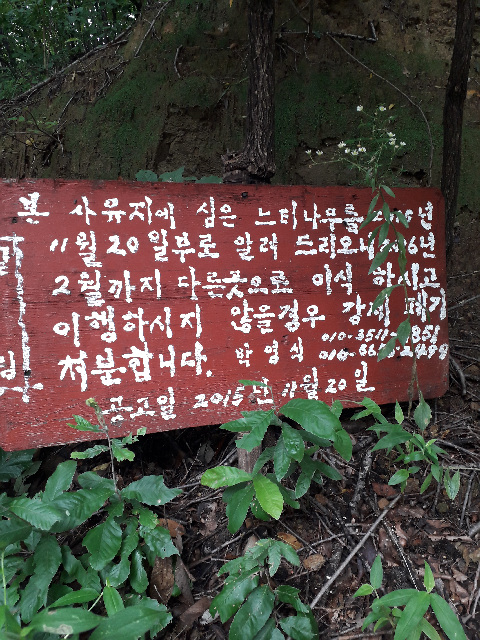 본 사유지에 심은 느티나무를 2015년
11월 20일부로 알려 드리오니 2016년
2월까지 다른곳으로 이식 하시고
이행하시지 않을경우 강제 폐기
처분합니다. 박영식
공고일 2015년 11월 20일